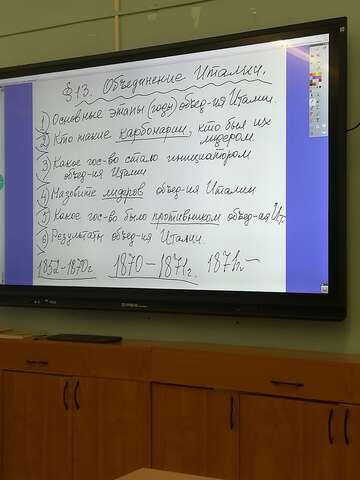 § 13. Объединение Италии.
1) Основные этапы (годы) объед-ия Италии.
2) Кто такие карбонарии, кто был их
лидером
3) Какое гос-во стало инициатором
объед-ия Италии
4) Назовите лидеров объед-ия Италии
5) Какое гос-во было противником объед-ия Ит.
6) Результаты объед-ия Италии.
1870 – 1871г. 1871г –